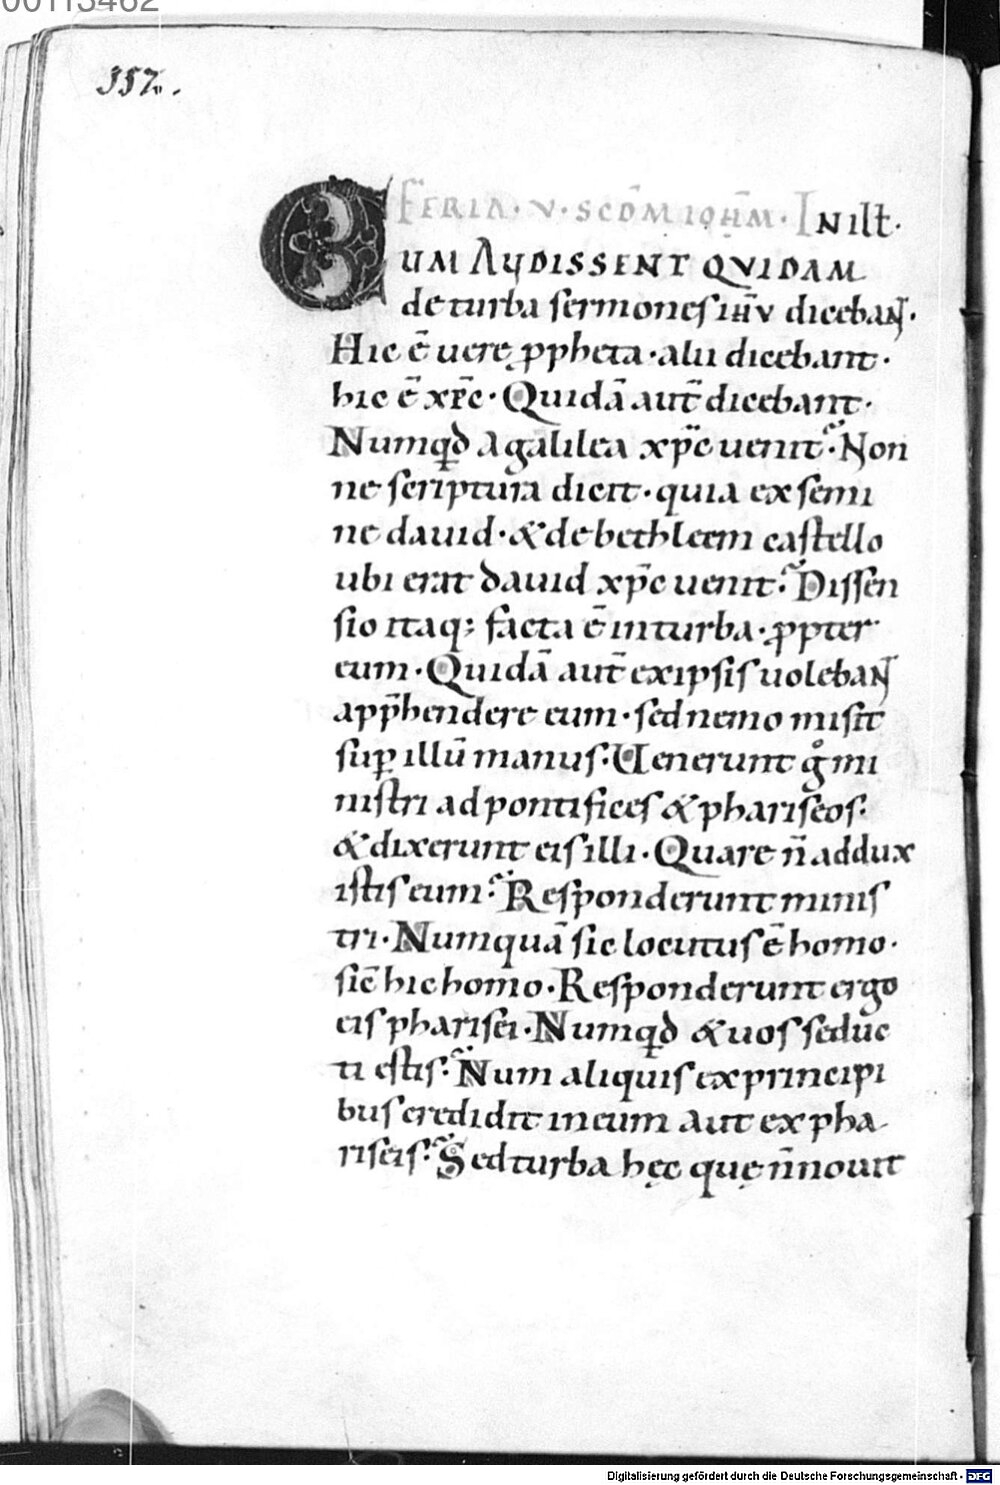 00113462
357.
FERIA · V · SCDM IOHM · IN ILL̄T.
CUM AUDISSENT QVIDAM
de turba sermones ihv diceban̄t·
Hic ē uere ꝓpheta · alii dicebant ·
hic ē xp̄c · Quidā aut̄ dicebant ·
Numqđ a galilea xp̄c uenit? Non
ne scriptura dicit · quia ex semi
ne dauid · & de bethleem castello
ubi erat dauid xp̄c uenit? Dissen
sio itaq; facta ē in turba · ꝓpter
eum · Quidā aut̄ ex ipsis uoleban̄t
app̄hendere eum · sed nemo misit
suꝑ illū manus · Uenerunt gͦ mi
nistri ad pontifices & phariseos ·
& dixerunt eis illi · Quare n̄ addux
istis eum? Responderunt minis
tri · Numquā sic locutus ē homo ·
sic̄ hic homo · Responderunt ergo
eis pharisei · Numqđ & uos seduc
ti estis? Num aliquis ex principi
bus credidit in eum aut ex pha
riseis? Sed turba hęc quę n̄ nouit
Digitalisierung gefördert durch die Deutsche Forschungsgemeinschaft - DFG